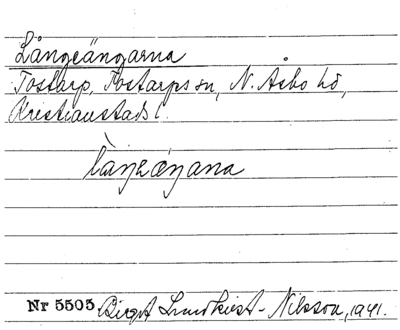 Långeängarna
Tostarp, Tostarps sn, N. Åsbo hd,
Kristianstads l.
låŋeæŋana
Nr 5505 Birgit Lundkvist-Nilsson, 1941.